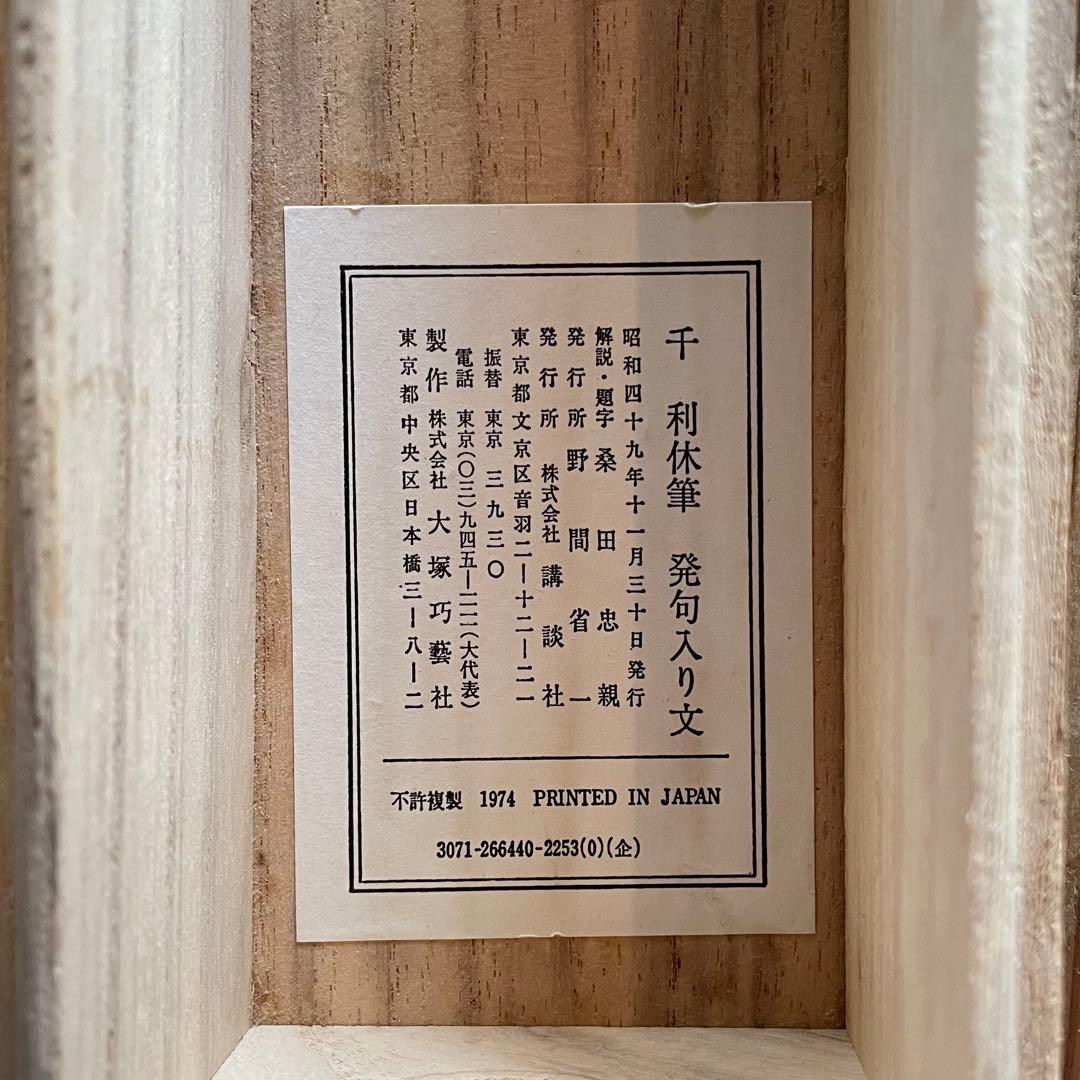 千 利休筆 発句入り文
昭和四十九年十一月三十日発行
解説・題字 桑田忠親
発行所 野間省一
発行所 株式会社 講談社
東京都文京区音羽二ー十二ー二一
振替 東京 三九三〇
電話 東京(〇三)九四五ー一一一一(大代表)
製作 株式会社 大塚巧藝社
東京都中央区日本橋三ー八ー二
不許複製 1974 PRINTED IN JAPAN
3071-266440-2253(0)(企)